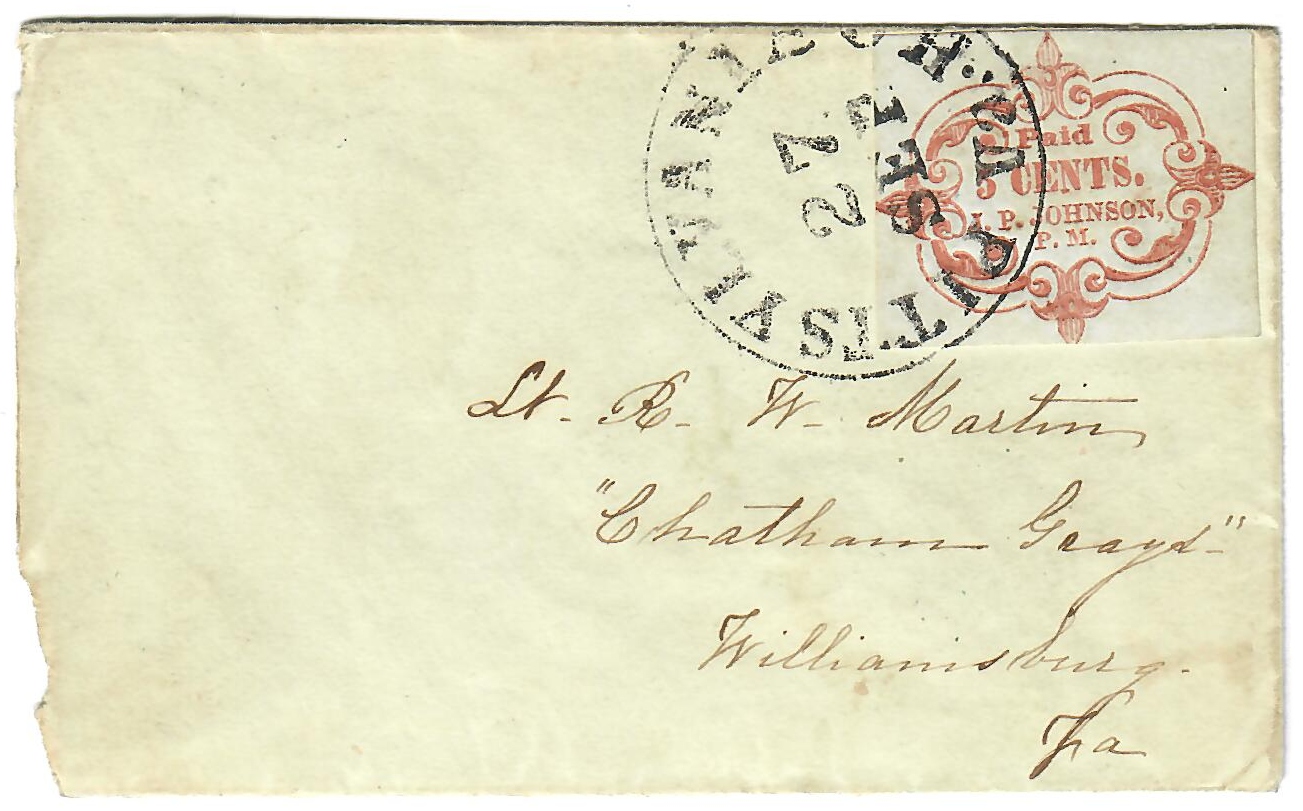 PITTSYLVANIA C H: Va
SEP
27
Paid
5 CENTS.
J. P. JOHNSON,
P. M.
Lt. R. W. Martin
"Chatham Grays"
Williamsburg.
Va